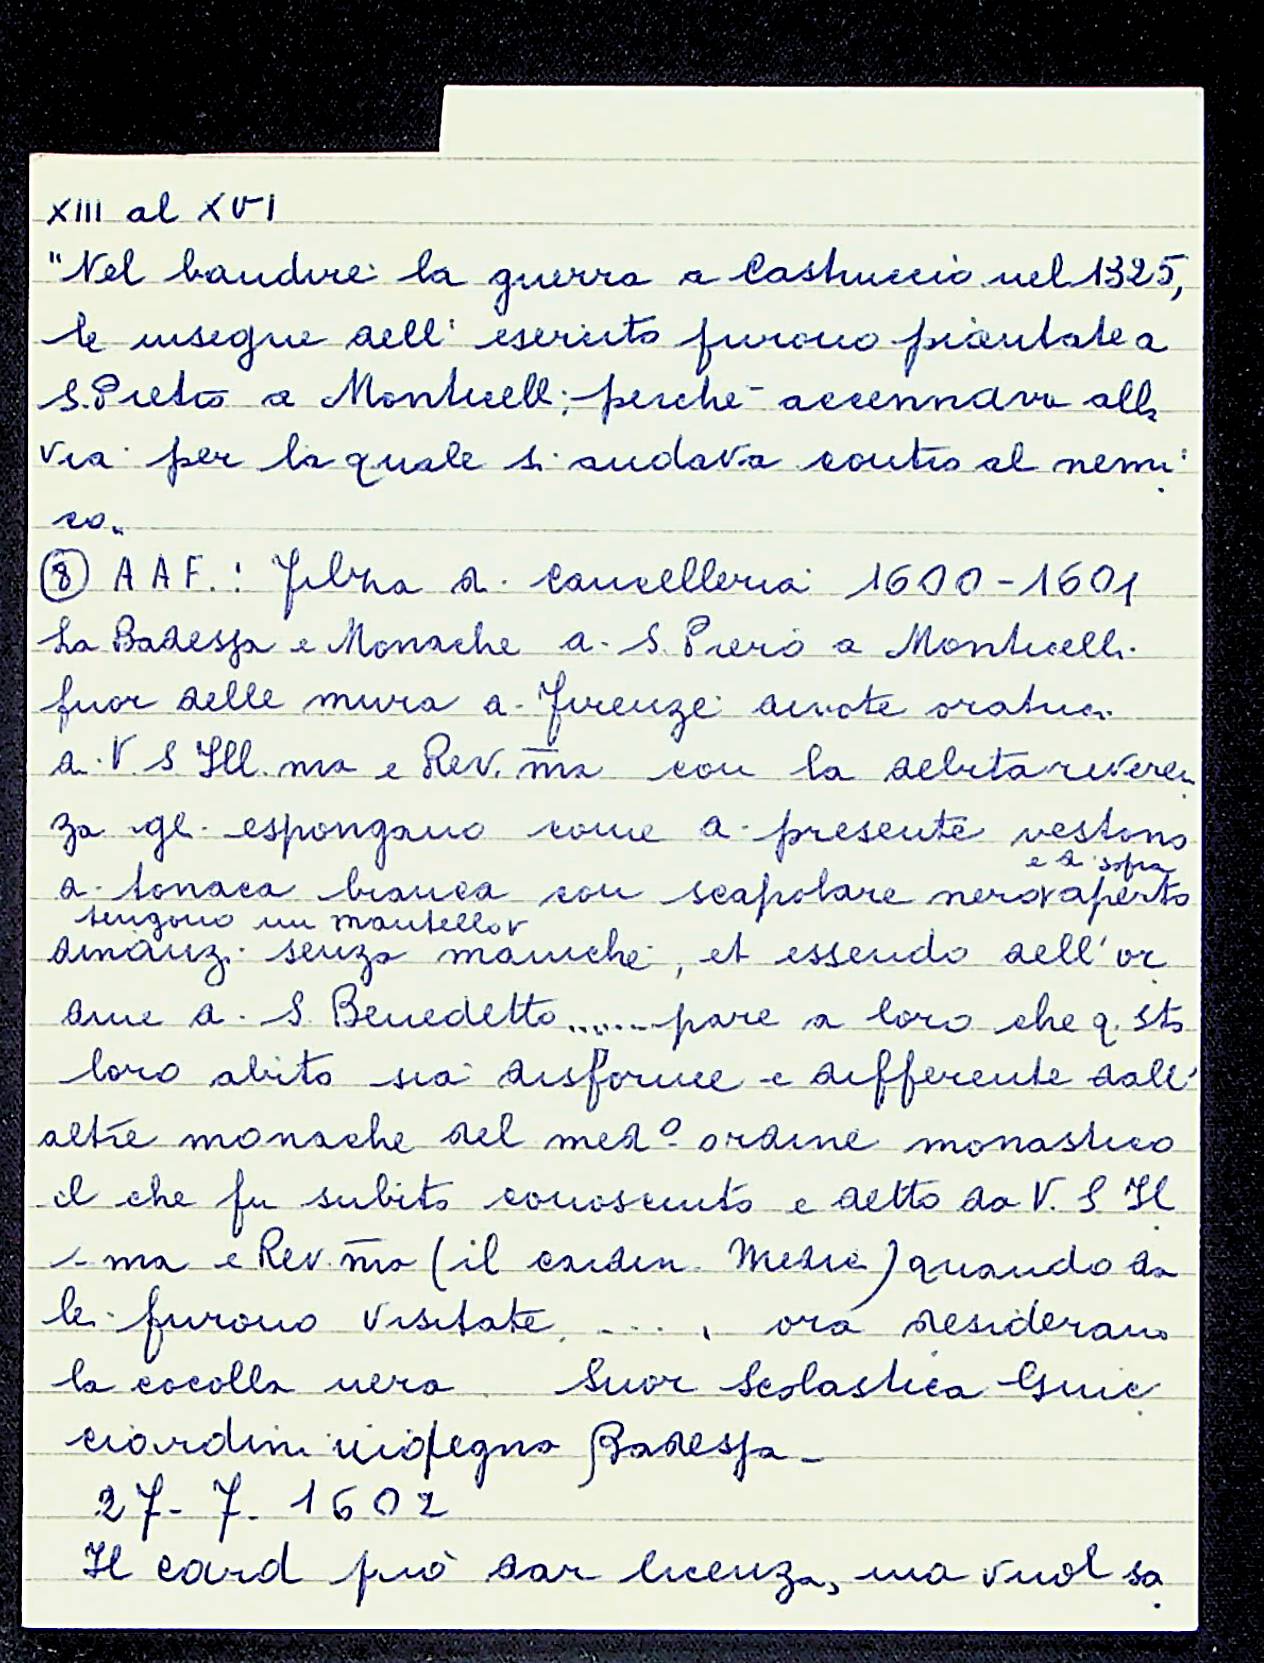 XIII al XVI
"Nel bandire la guerra a Castruccio nel 1325,
le insegne dell' esercito furono piantate a
S. Pietro a Monticelli, perchè accennava alla
via per la quale si andava contro al nemi
co„
⑧ A A F. : Filza di Cancelleria 1600-1601
La Badessa e Monache di S. Piero a Monticelli
fuor delle mura di Firenze divote oratrici
di V. S Ill.ma e Rev.m̄a con la debita reveren
za gli espongano come di presente vestono
e di sopra
di tonaca bianca con scapolare nero v aperto
tengono un mantello v
dinanzi senza maniche, et essendo dell'or
dine di S. Benedetto ....... pare a loro che q.sto
loro abito sia disforme e differente dall'
altre monache del med.º ordine monastico
il che fu subito conosciuto e detto da V. S. Il
l.ma e Rev.m̄a (il cardin. Medici) quando da
lei furono visitate. .... , ora desiderano
la cocolla nera. Suor Scolastica Guic
ciardini indegna Badessa-
27-7-1602
Il card può dar licenza, ma vuol sa